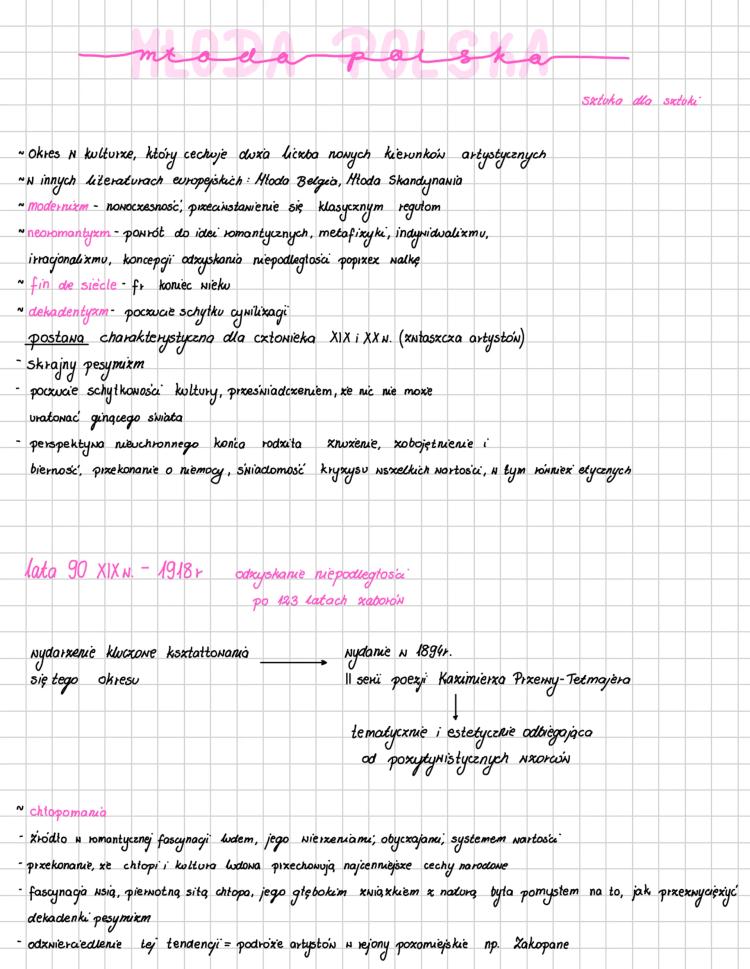 MŁODA POLSKA
młoda polska
sztuka dla sztuki
~ okres w kulturze, który cechuje duża liczba nowych kierunków artystycznych
~ w innych literaturach europejskich: Młoda Belgia, Młoda Skandynawia
~ modernizm - nowoczesność, przeciwstawienie się klasycznym regułom
~ neoromantyzm - powrót do idei romantycznych, metafizyki, indywidualizmu,
irracjonalizmu, koncepcji odzyskania niepodległości poprzez walkę
~ fin de siècle - fr koniec wieku
~ dekadentyzm - poczucie schyłku cywilizacji
postawa charakterystyczna dla człowieka XIX i XX w. (zwłaszcza artystów)
- skrajny pesymizm
- poczucie schyłkowości kultury, przeświadczeniem, że nic nie może
uratować ginącego świata
- perspektywa nieuchronnego końca rodziła znużenie, zobojętnienie i
bierność, przekonanie o niemocy, świadomość kryzysu wszelkich wartości, w tym również etycznych
lata 90 XIX w. - 1918r odzyskanie niepodległości
po 123 latach zaborów
wydarzenie kluczowe kształtowania → wydanie w 1894r.
się tego okresu II serii poezji Kazimierza Przerwy-Tetmajera
↓
tematycznie i estetycznie odbiegająca
od pozytywistycznych wzorców
~ chłopomania
- źródło w romantycznej fascynacji ludem, jego wierzeniami, obyczajami, systemem wartości
- przekonanie, że chłopi i kultura ludowa przechowują najcenniejsze cechy narodowe
- fascynacja wsią, pierwotną siłą chłopa, jego głębokim związkiem z naturą była pomysłem na to, jak przezwyciężyć
dekadencki pesymizm
- odzwierciedlenie tej tendencji = podróże artystów w rejony pozamiejskie np. Zakopane